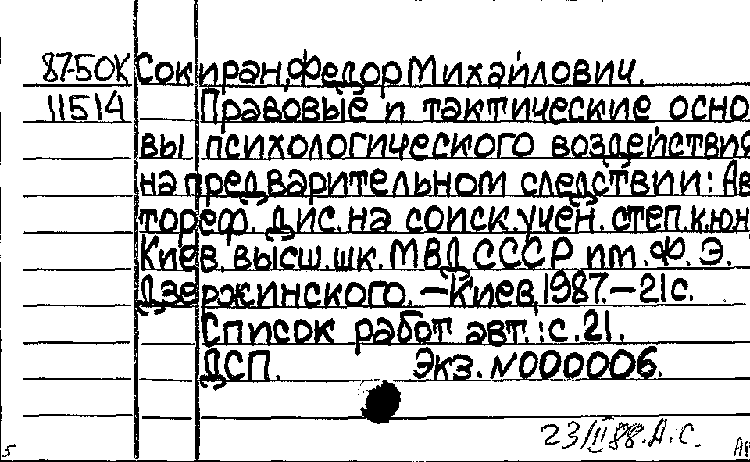 87-5ОК Сокиран, Федор Михайлович.
11514 Правовые и тактические осно
вы психологического воздействия
на предварительном следствии: Ав
тореф. дис. на соиск. учен. степ. к.юн
Киев. высш. шк. МВД СССР им. Ф. Э.
Дзержинского. – Киев, 1987. – 21 с.
Список работ авт.: с. 21.
ДСП. Экз. N000006.
23/II 88. А.С.
5